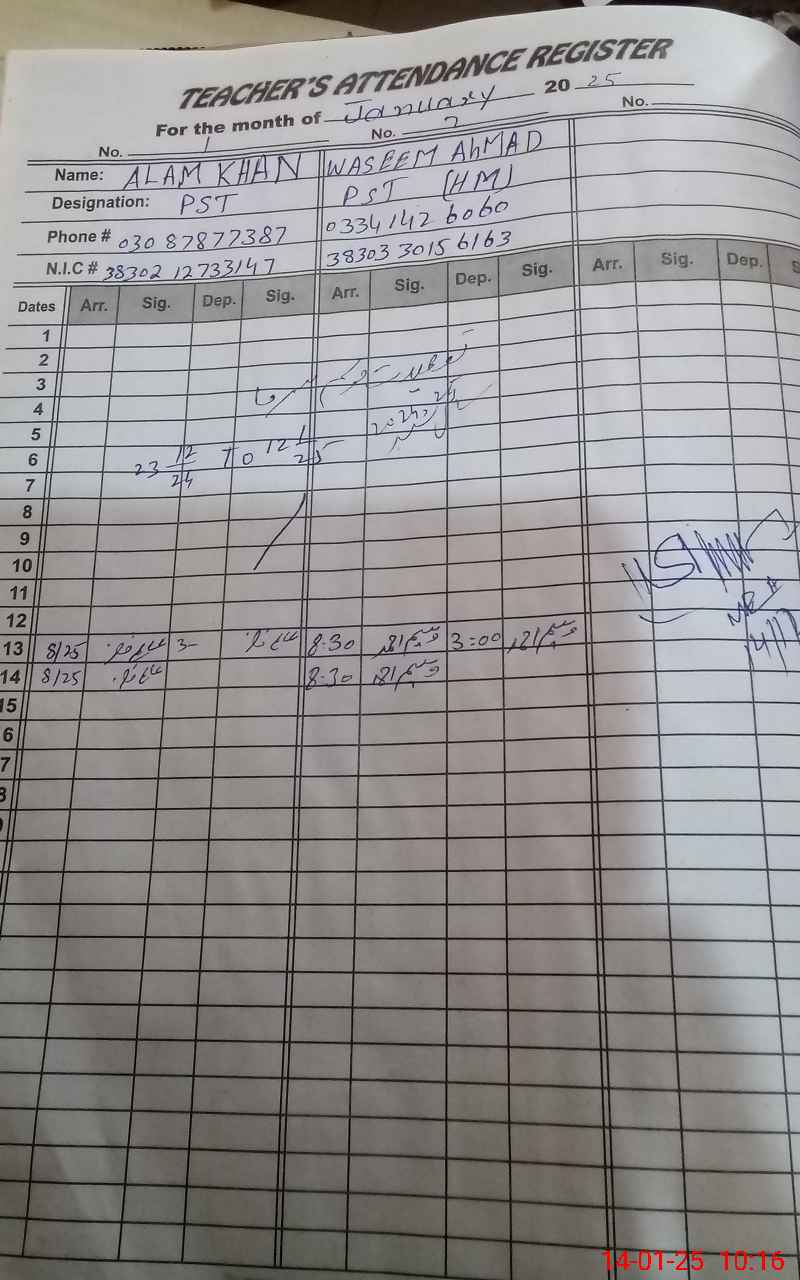 TEACHER'S ATTENDANCE REGISTER
For the month of January 20 25
No. 1 No. 2 No.
Name: ALAM KHAN WASEEM AHMAD
Designation: PST PST (HM)
Phone # 030 87877387 0334 142 6060
N.I.C # 38302 12733147 38303 3015 6163
Dates Arr. Sig. Dep. Sig. Arr. Sig. Dep. Sig. Arr. Sig. Dep. S
1
2
3 تعطیلات موسم سرما
4
5 2024-25
6 23 12/24 To 12 1/25
7
8
9
10
11
12
13 8/25 3- 8:30 وسیم احمد 3:00 وسیم احمد
14 8/25 8:30 وسیم احمد
15
6
7
8
14-01-25 10:16